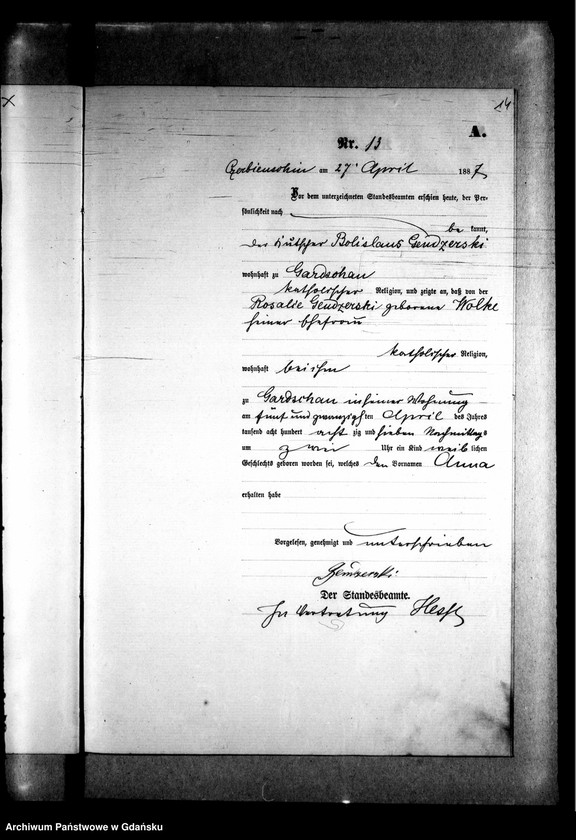 14
A.
Nr. 13
Czarbienschin am 27t April 1887
Vor dem unterzeichneten Standesbeamten erschien heute, der Per-
sönlichkeit nach
be kannt,
der Kutscher Bolislaus Gendzerski
wohnhaft zu Gardschau
katholischer Religion, und zeigte an, daß von der
Rosalie Gendzerski geborene Wolke
seiner Ehefrau
katholischer Religion,
wohnhaft bei ihm
zu Gardschau in seiner Wohnung
am fünf und zwanzigsten April des Jahres
tausend acht hundert acht zig und sieben Nachmittags
um zwei Uhr ein Kind weib lichen
Geschlechts geboren worden sei, welches den Vornamen Anna
erhalten habe
Vorgelesen, genehmigt und unterschrieben
Gendzerski
Der Standesbeamte.
In Vertretung Hesse
Archiwum Państwowe w Gdańsku